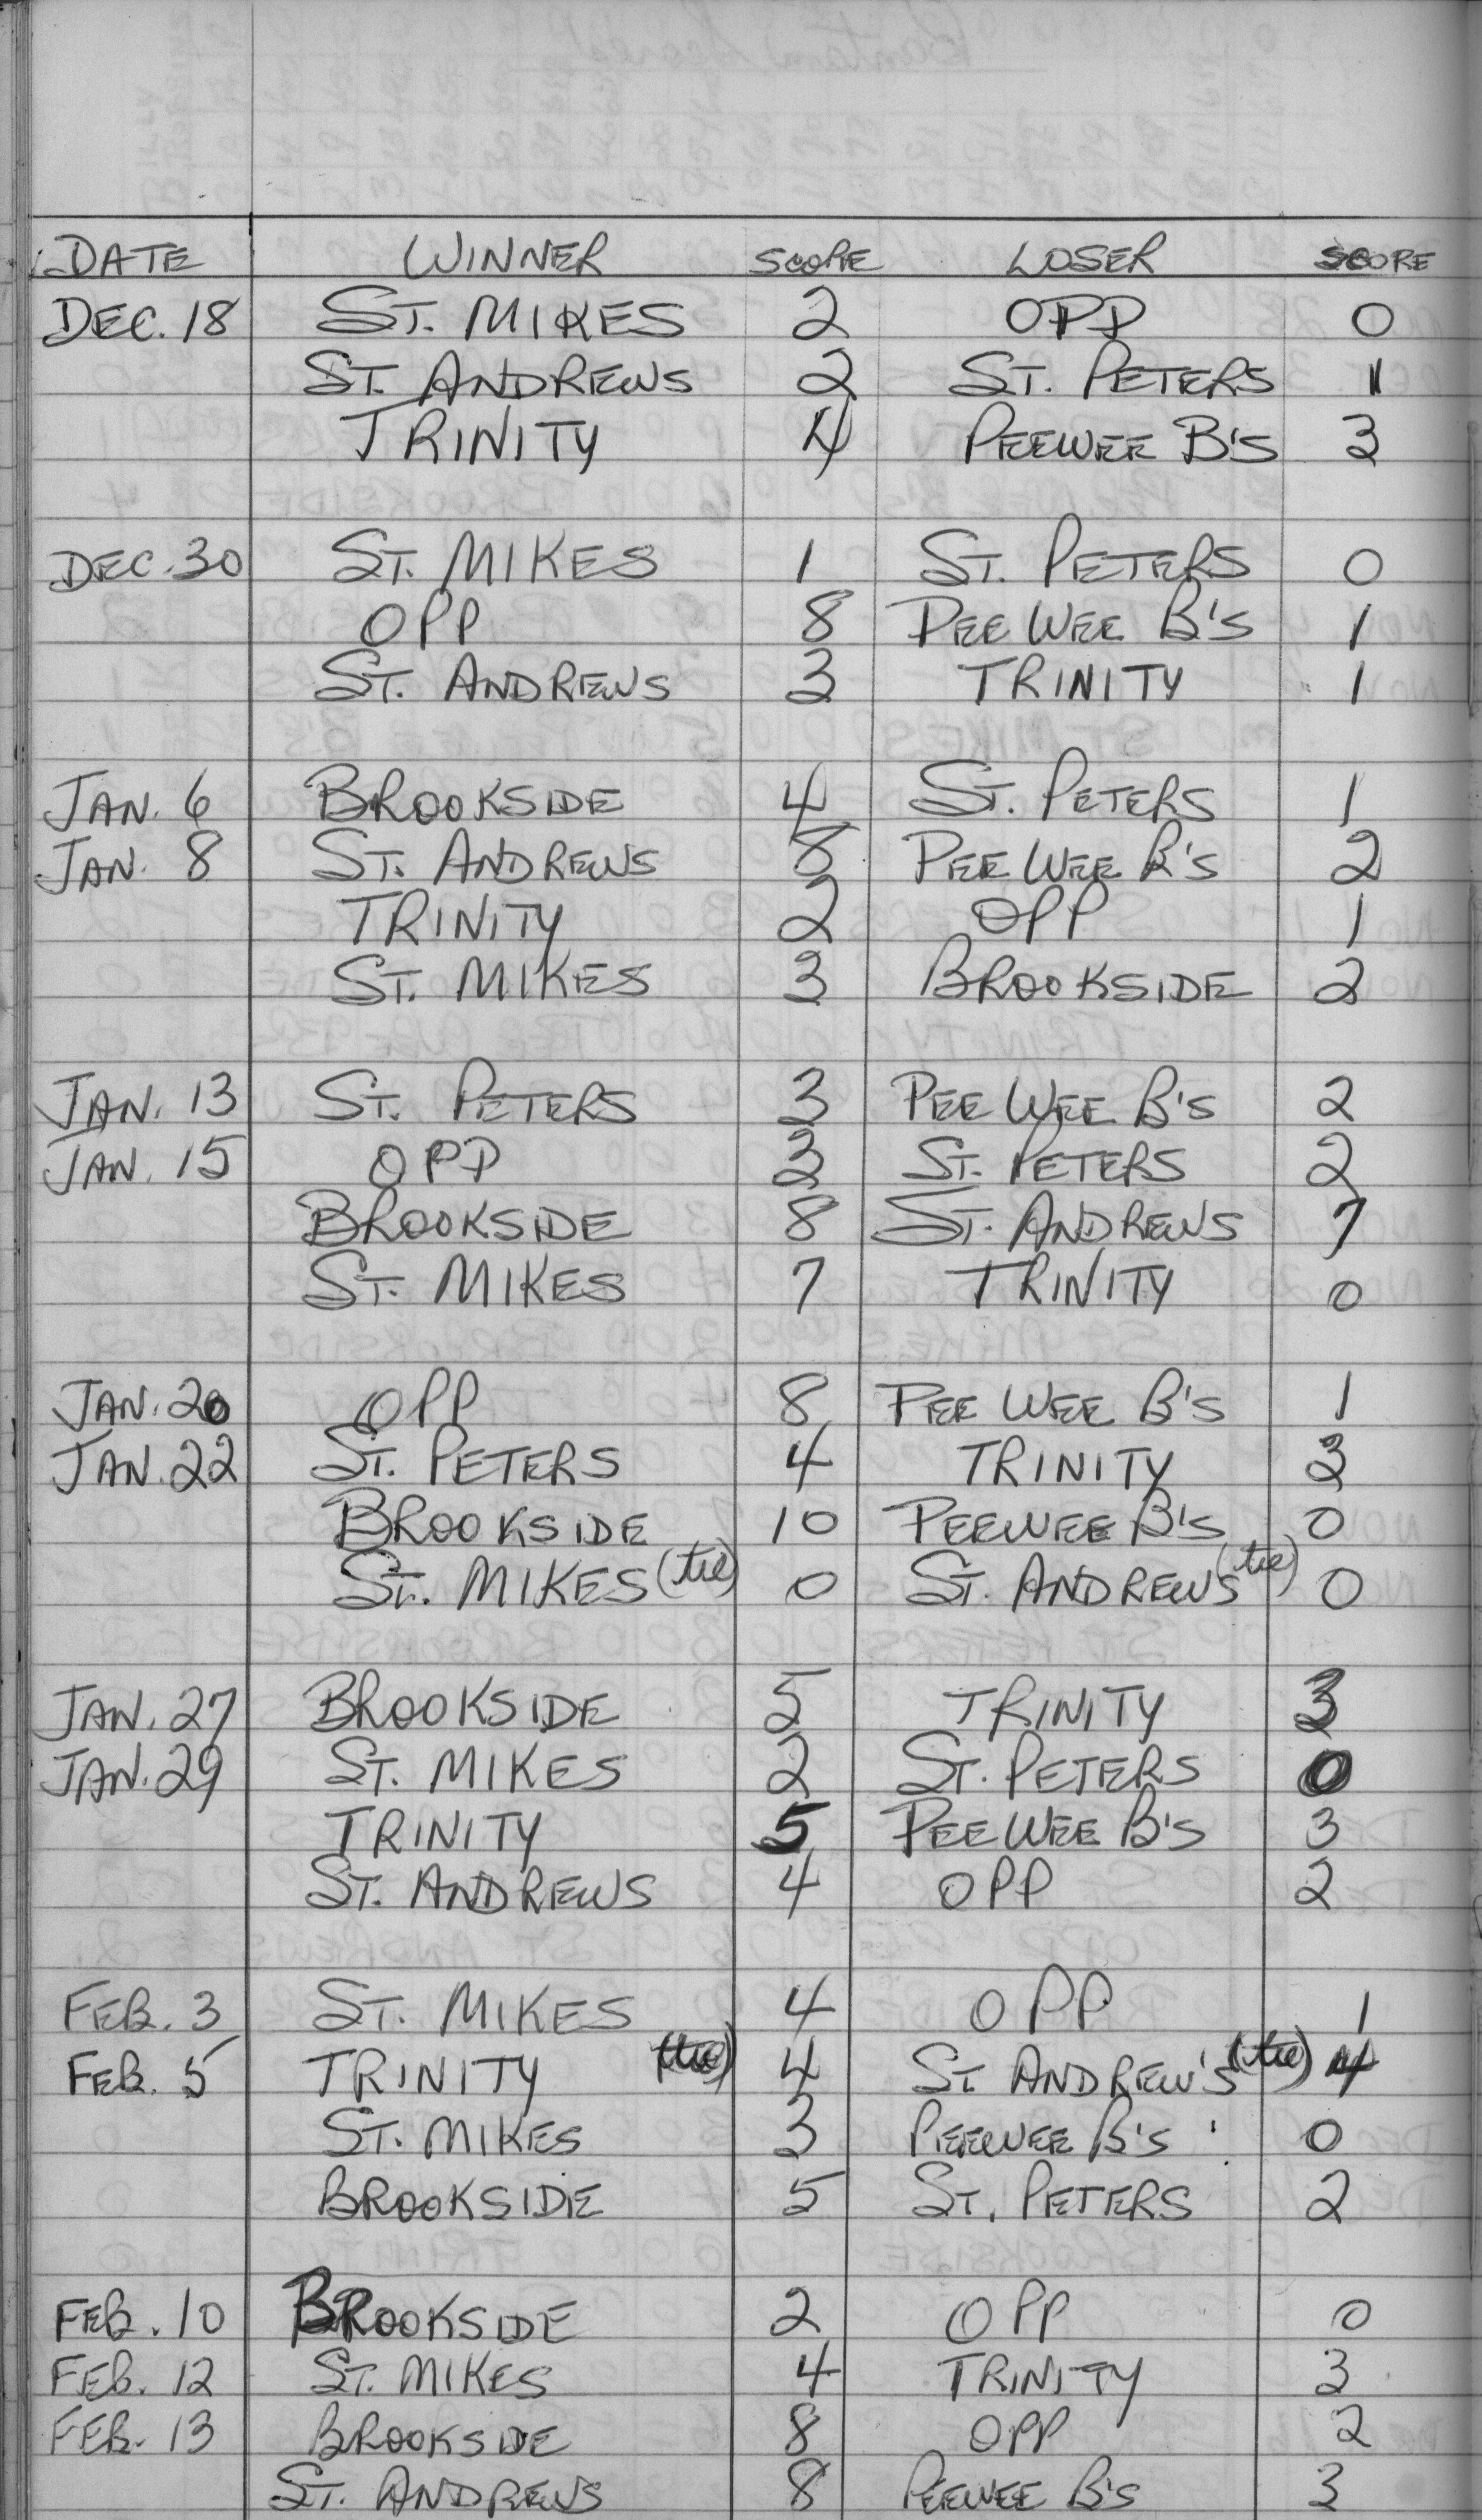 DATE WINNER SCORE LOSER SCORE
DEC. 18 ST. MIKES 2 OPP 0
ST. ANDREWS 2 ST. PETERS 1
TRINITY 4 PEEWEE B'S 3
DEC. 30 ST. MIKES 1 ST. PETERS 0
OPP 8 PEE WEE B'S 1
ST. ANDREWS 3 TRINITY 1
JAN. 6 BROOKSIDE 4 ST. PETERS 1
JAN. 8 ST. ANDREWS 8 PEE WEE B'S 2
TRINITY 2 OPP 1
ST. MIKES 3 BROOKSIDE 2
JAN. 13 ST. PETERS 3 PEE WEE B'S 2
JAN. 15 OPP 3 ST. PETERS 2
BROOKSIDE 8 ST. ANDREWS 7
ST. MIKES 7 TRINITY 0
JAN. 20 OPP 8 PEE WEE B'S 1
JAN. 22 ST. PETERS 4 TRINITY 3
BROOKSIDE 10 PEEWEE B'S 0
ST. MIKES (tie) 0 ST. ANDREWS (tie) 0
JAN. 27 BROOKSIDE 5 TRINITY 3
JAN. 29 ST. MIKES 2 ST. PETERS 0
TRINITY 5 PEE WEE B'S 3
ST. ANDREWS 4 OPP 2
FEB. 3 ST. MIKES 4 OPP 1
FEB. 5 TRINITY (tie) 4 ST ANDREW'S (tie) 4
ST. MIKES 3 PEEWEE B'S 0
BROOKSIDE 5 ST. PETERS 2
FEB. 10 BROOKSIDE 2 OPP 0
FEB. 12 ST. MIKES 4 TRINITY 3
FEB. 13 BROOKSIDE 8 OPP 2
ST. ANDREWS 8 PEEWEE B'S 3